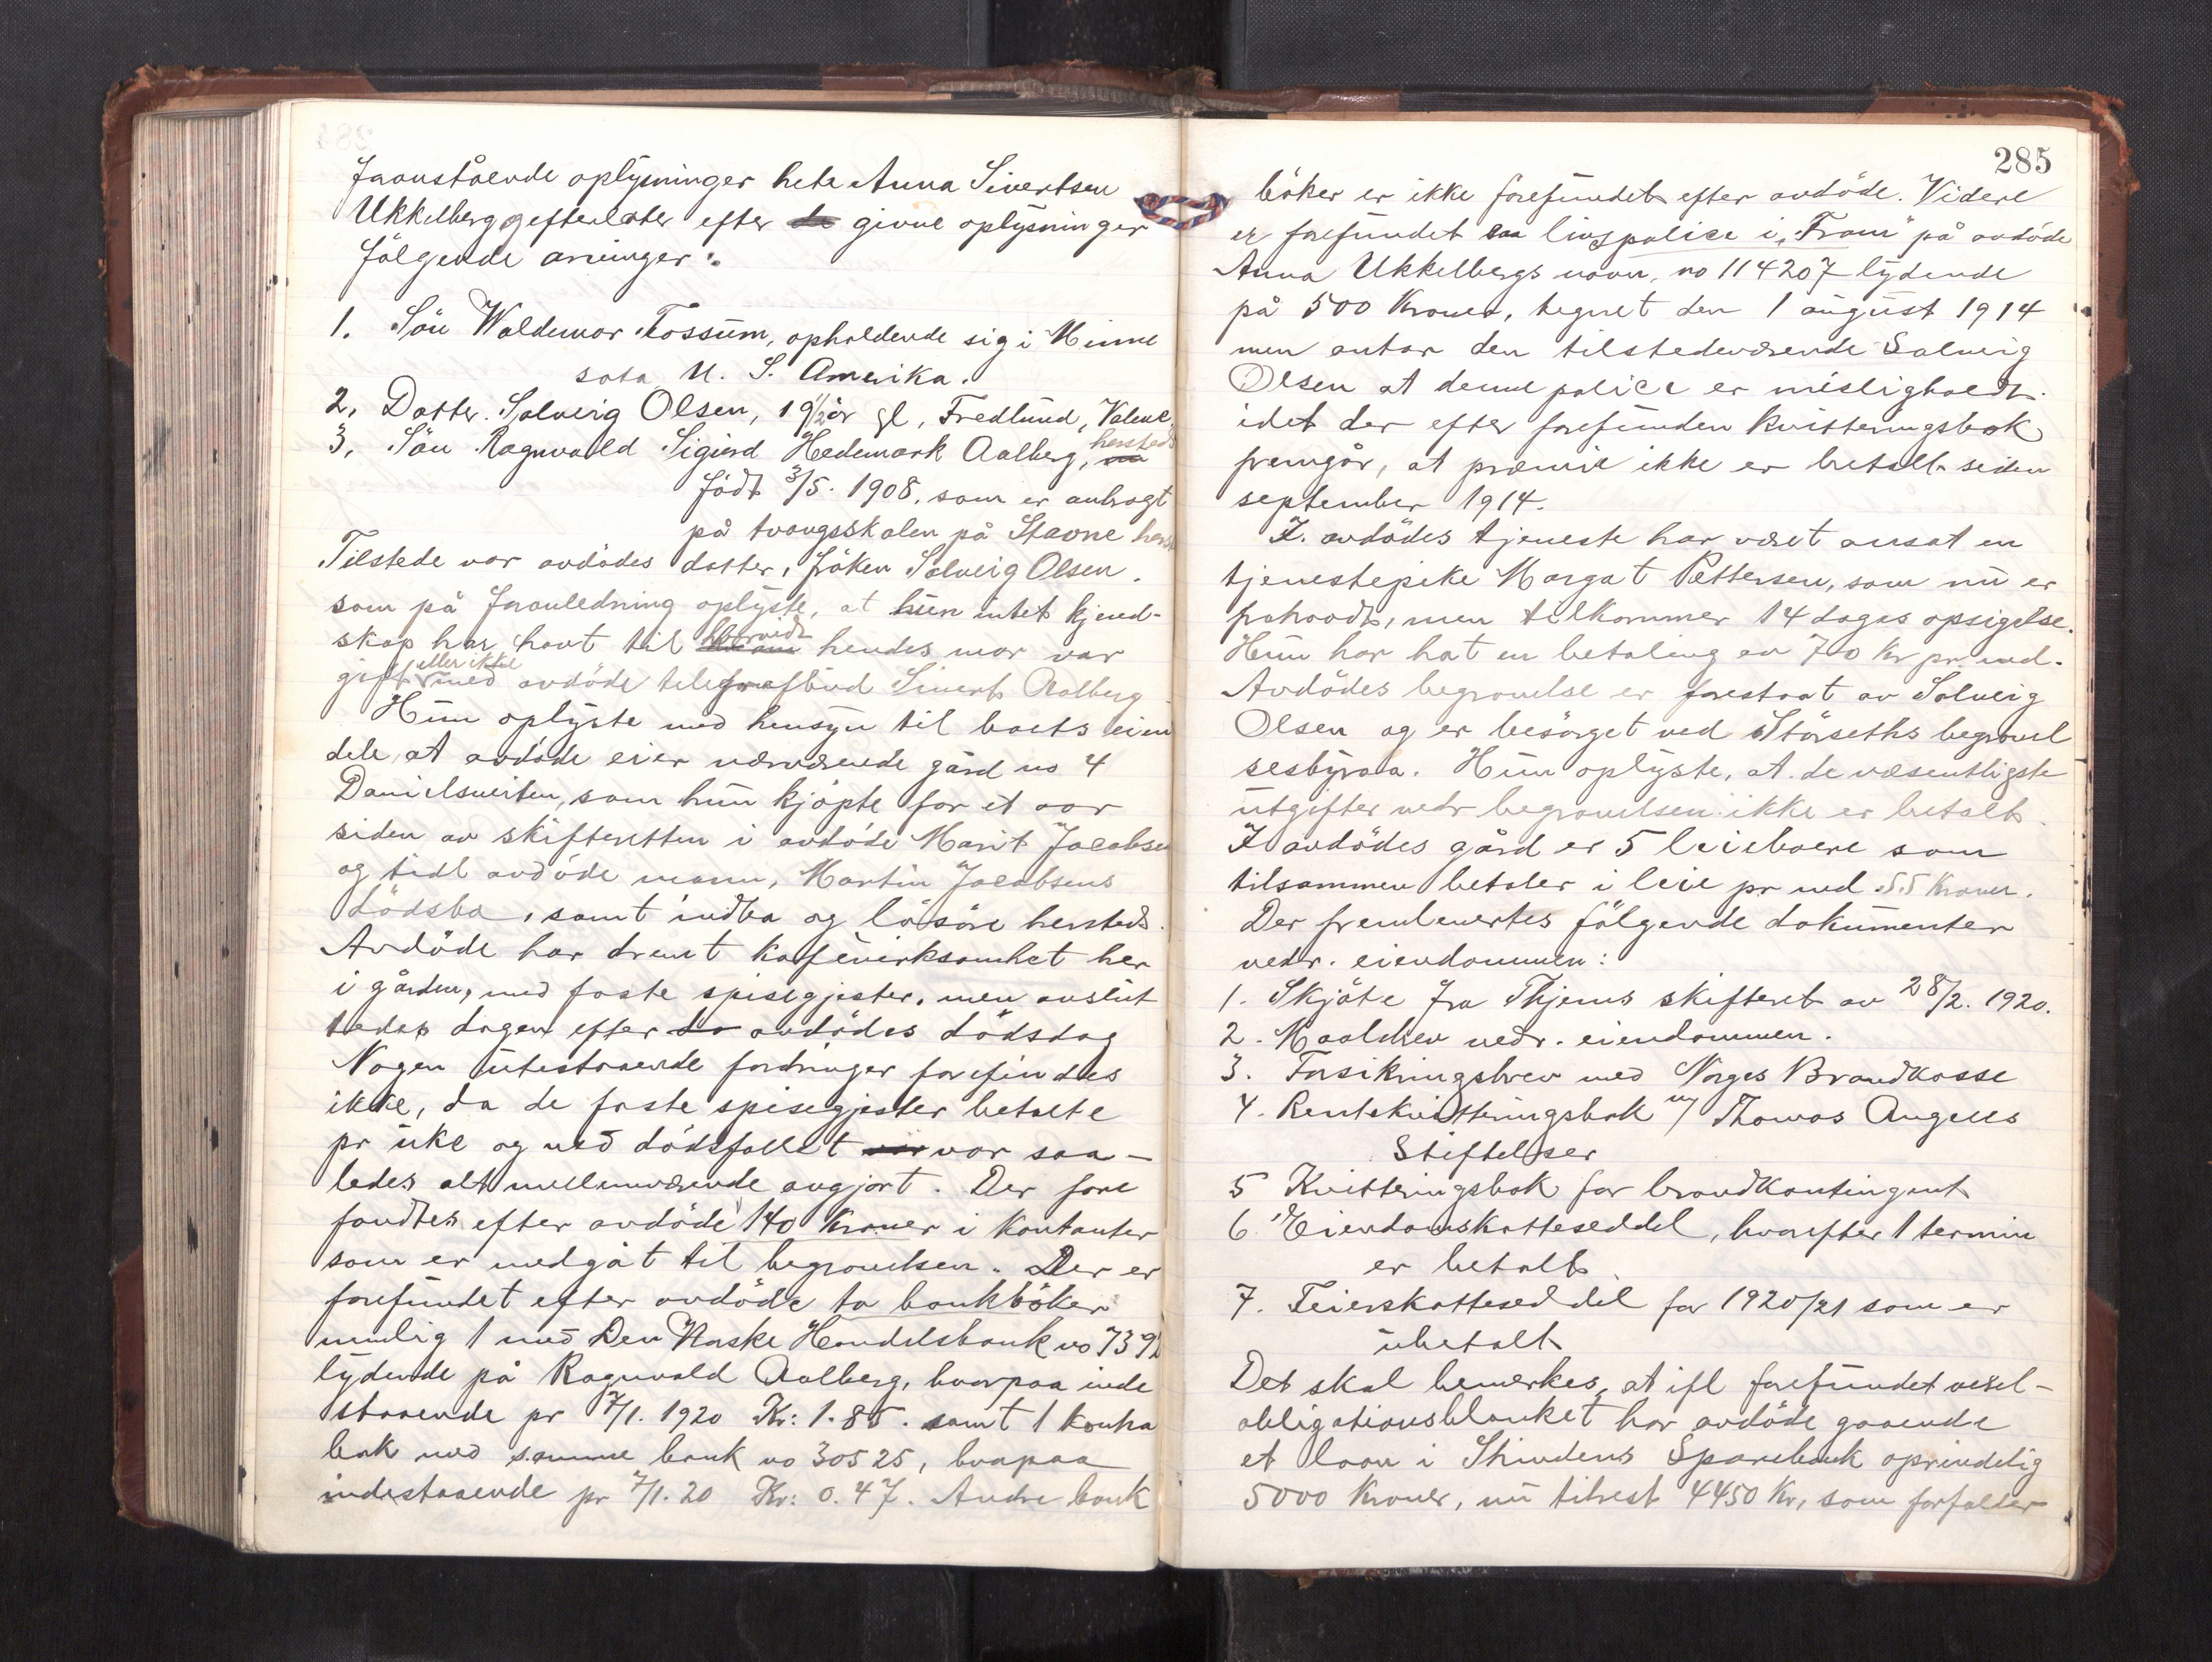 foranstående oplysninger hete Anna Sivertsen
Ukkelberg og efterlater efter de givne oplysninger
følgende arvinger:
1. Sön Waldemar Fossum, opholdende sig i Minne
sota U. S. Amerika.
2. Datter Solveig Olsen, 19 1/2 år gl, Fredlund, Valene
3. Sön Ragnvald Sigurd Hedemark Aalberg, hersteds
född 3/5. 1908, som er anbragt
på tvangsskolen på Stavne herst
Tilstede var avdödes datter, fröken Solveig Olsen.
som på foranledning oplyste, at hun intet kjend-
skap har havt til hvorvidt hendes mor var
gift eller ikke med avdöde telegrafbud Sivert Aalberg
Hun oplyste med hensyn til boets eien
dele, at avdöde eier nærværende gård no 4
Danielsveiten, som hun kjöpte for et aar
siden av skifteretten i avdöde Marit Jacobsen
og tidl avdöde mann, Martin Jacobsens
dödsbo, samt indbo og lösöre hersteds.
Avdöde har drevt kafévirksomhet her
i gården, med faste spisegjester, men avslut
tedes dagen efter avdödes dödsdag
Nogen utestaaende fordringer forefindes
ikke, da de faste spisegjester betalte
pr uke og ved dödsfallet var saa-
ledes alt mellemværende avgjort. Der fore
fandtes efter avdöde 140 Kroner i Kontanter
som er medgåt til begravelsen. Der er
forefundet efter avdöde to bankböker
nemlig 1 med Den Norske Handelsbank no 7392
lydende på Ragnvald Aalberg, hvorpaa inde
staaende pr 7/1. 1920 Kr: 1.85. samt 1 kontra
bok med samme bank no 30525, hvorpaa
indestaaende pr 7/1. 20 Kr: 0.47. Andre bank
285
böker er ikke forefundet efter avdöde. Videre
er forefundet livspolice i "Fram" på avdöde
Anna Ukkelbergs navn, no 114207 lydende
på 500 Kroner, tegnet den 1 august 1914
men antar den tilstedeværende Solveig
Olsen at denne police er misligholdt.
idet der efter forefunden kvitteringsbok
fremgår, at præmie ikke er betalt siden
september 1914.
I avdödes tjeneste har været ansat en
tjenestepike Margat Pettersen, som nu er
frahaandt, men tilkommer 14 dages opsigelse.
Hun har hat en betaling av 70 Kr pr. md.
Avdödes begravelse er forestaat av Solveig
Olsen og er besörget ved Störseths begravel
sesbyraa. Hun oplyste, at de væsentligste
utgifter vedr begravelsen ikke er betalt.
I avdödes gård er 5 leieboere som
tilsammen betaler i leie pr md 55 Kroner.
Der fremlevertes følgende dokumenter
vedr. eiendommen:
1. Skjöte fra Thjems skifteret av 28/2. 1920.
2. Maalebrev vedr. eiendommen.
3. Forsikringsbrev med Norges Brandkasse
4. Rentekvitteringsbok m/ Thomas Angells
Stiftelser
5 Kvitteringsbok for brandkontingent
6. Eiendomsskatteseddel, hvorefter 1 termin
er betalt.
7. Feierskatteseddel for 1920/21 som er
ubetalt
Det skal bemerkes, at ifl forefundet vexel-
obligationsblanket har avdöde gaaende
et laan i Strindens Sparebank oprindelig
5000 Kroner, nu tilrest 4450 Kr, som forfalder